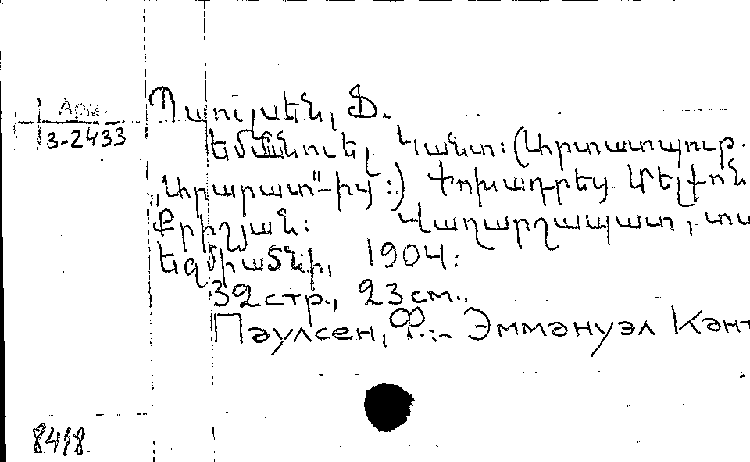 Арм.
3-2433
Պաուլսեն, Ֆ.
Եմմանուել Կանտ։ (Արտատպութ.
„Արարատ"-ից։) Փոխադրեց Մելքոն
Քրիշչյան։ Վաղարշապատ, տպ
Եզմիածնի, 1904։
32 стр., 23 см..
Паулсен, Ф.:- Эммануэл Кант
8418